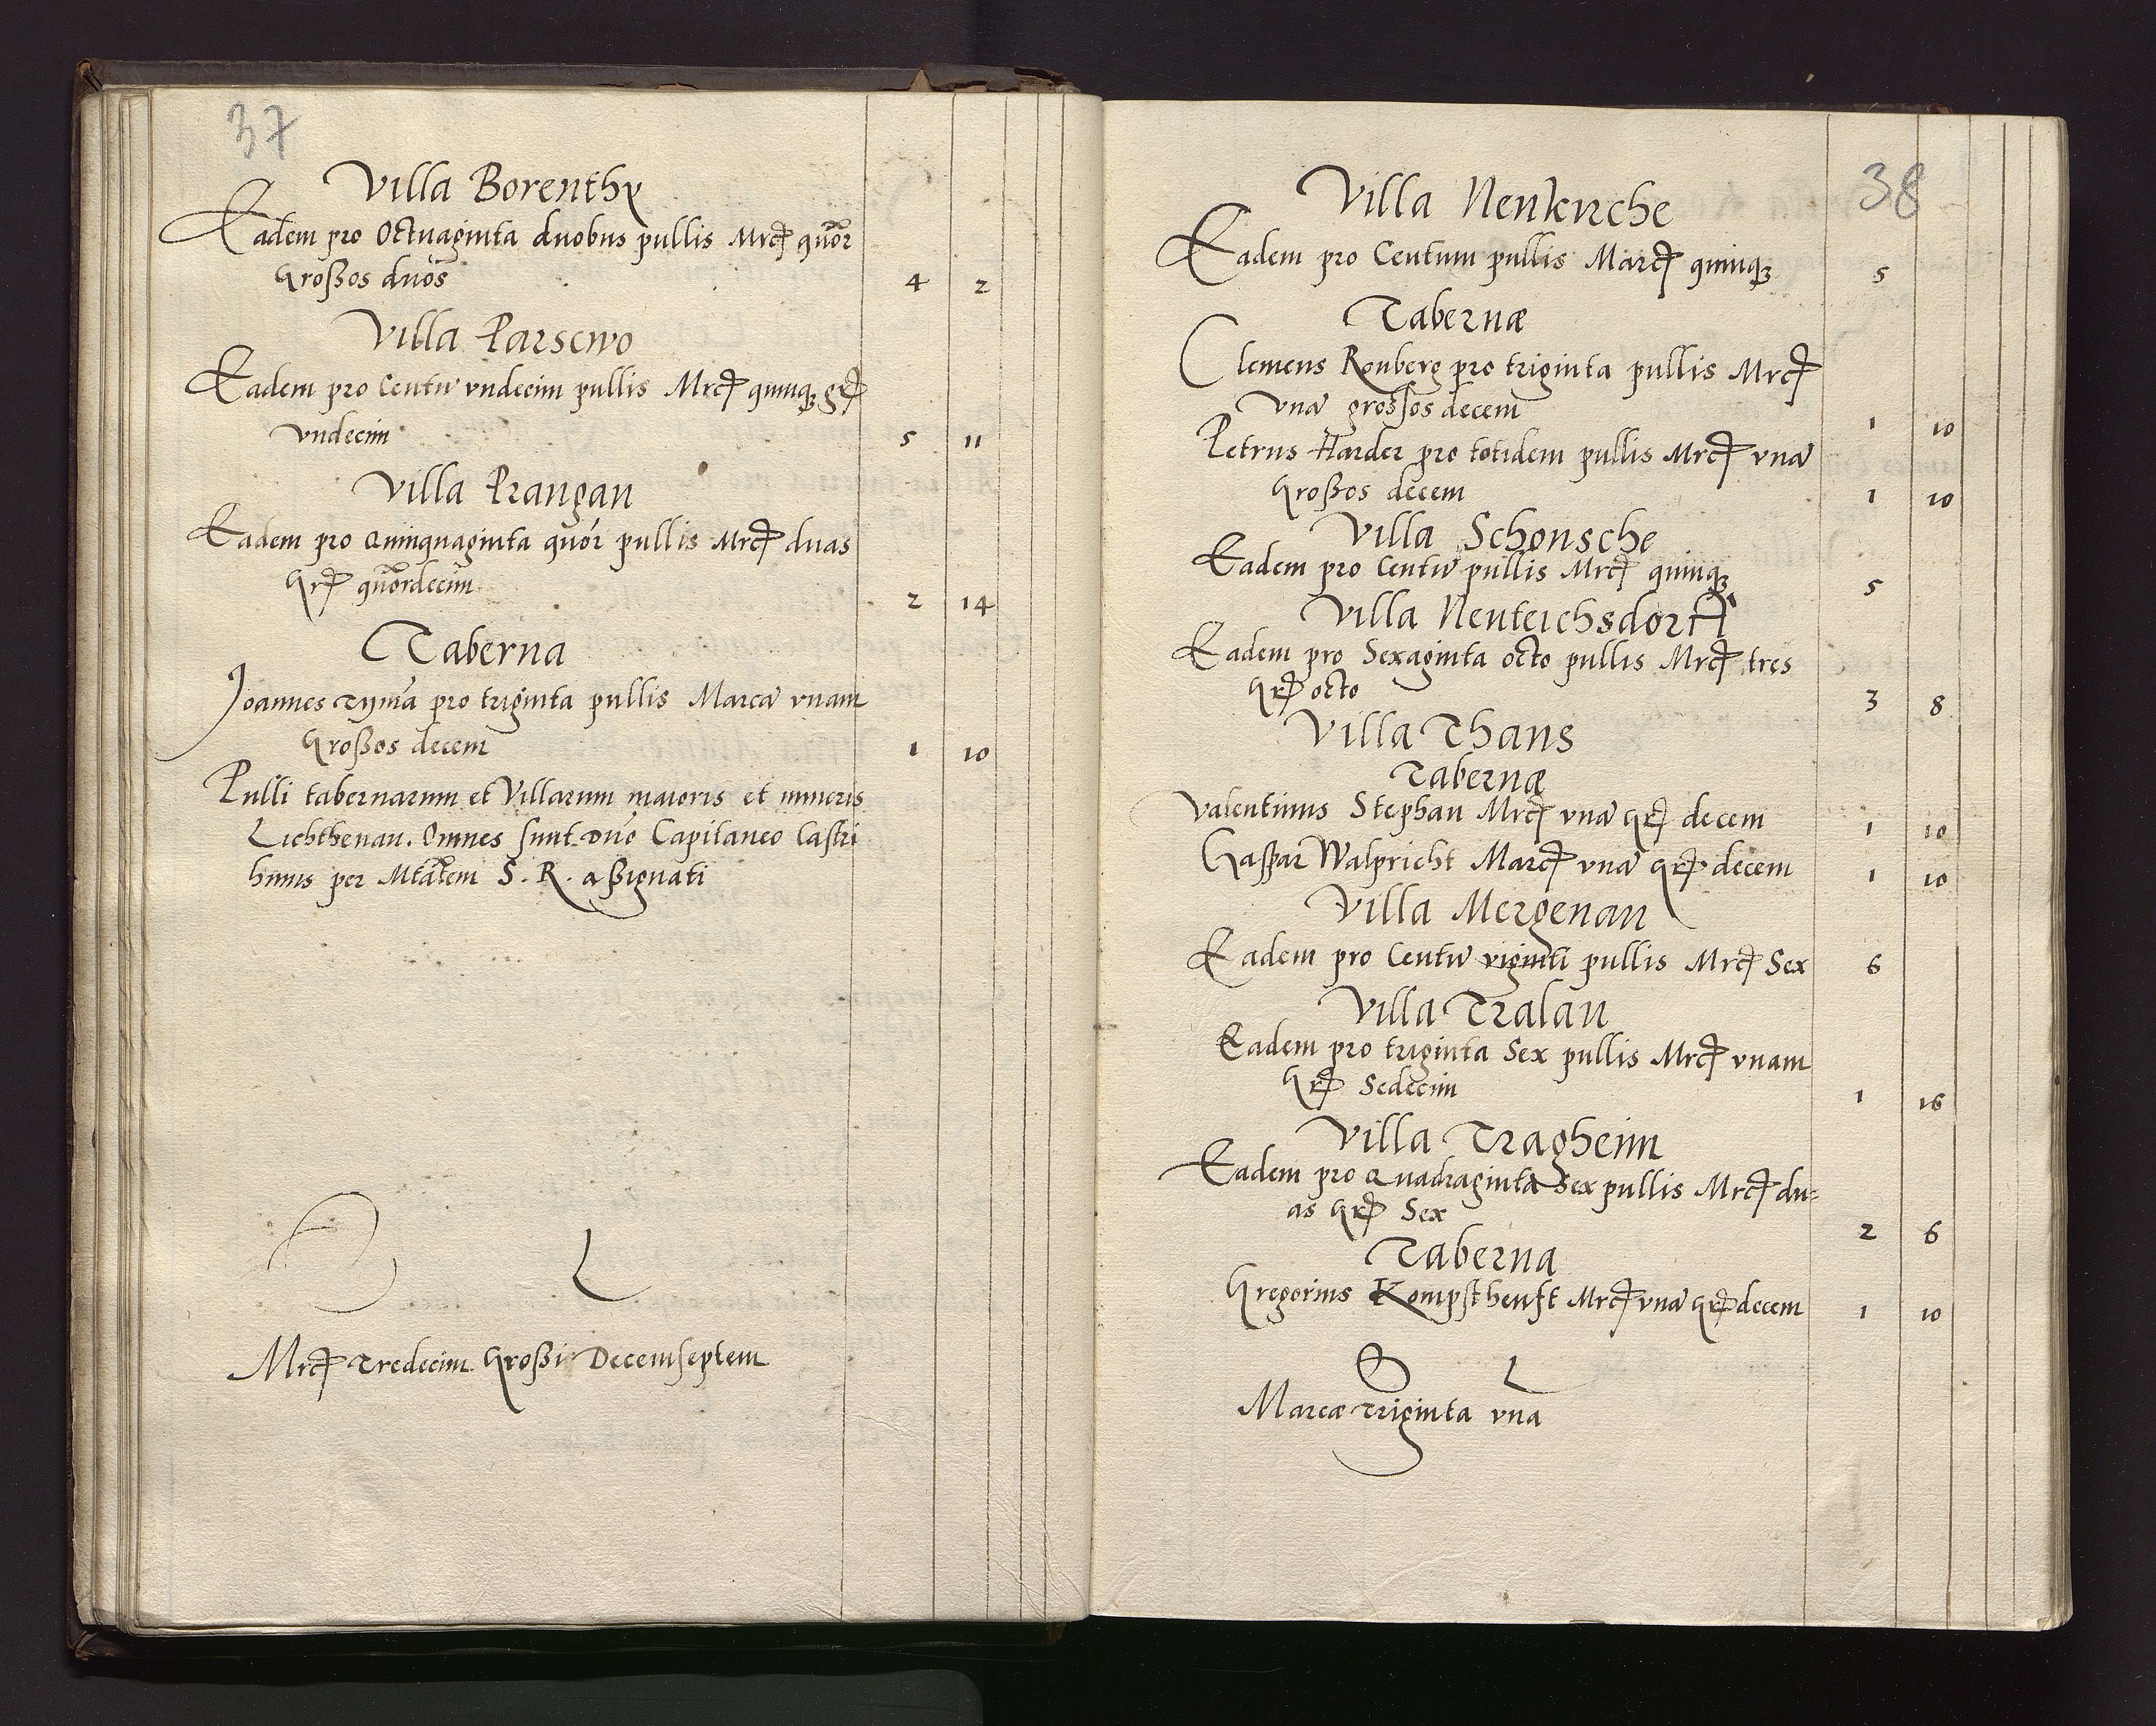 37
Villa Borenthÿ
Eadem pro Octuaginta duobus pullis Mrc quor
Großos duos 4 2
Villa Parscwo
Eadem pro Centu vndecim pullis Mrc quinq gr
vndecim 5 11
Villa Prangan
Eadem pro Quinquaginta quor pullis Mrc duas
Gr quordecim 2 14
Taberna
Joannes pro triginta pullis Marca vnam
Großos decem 1 10
Pulli tabernarum et Villarum maioris et mineris
Lichthenau. Omnes sunt Dno Capitaneo Castri
huius per Mtatem S. R. aßignati
Mrc Tredecim Großi Decemseptem
38
Villa Neukirche
Eadem pro Centum pullis Marc quinq 5
Tabernæ
Clemens Ronberg pro triginta pullis Mrc
vna grossos decem 1 10
Petrus Harder pro totidem pullis Mrc vna
Großos decem 1 10
Villa Schonsche
Eadem pro Centu pullis Mrc quinq 5
Villa Neuteichsdorff
Eadem pro Sexaginta octo pullis Mrc tres
Gr octo 3 8
Villa Thans
Tabernæ
Valentinus Stephan Mrc vna Gr decem 1 10
Gaspar Walpricht Marc vna Gr decem 1 10
Villa Mergenau
Eadem pro Centu viginti pullis Mrc Sex 6
Villa Tralau
Eadem pro triginta Sex pullis Mrc vnam
Gr Sedecim 1 16
Villa Tragheim
Eadem pro Quadraginta Sex pullis Mrc du=
as Gr Sex 2 6
Taberna
Gregorius Kompstheuft Mrc vna Gr decem 1 10
Marcæ Triginta vna